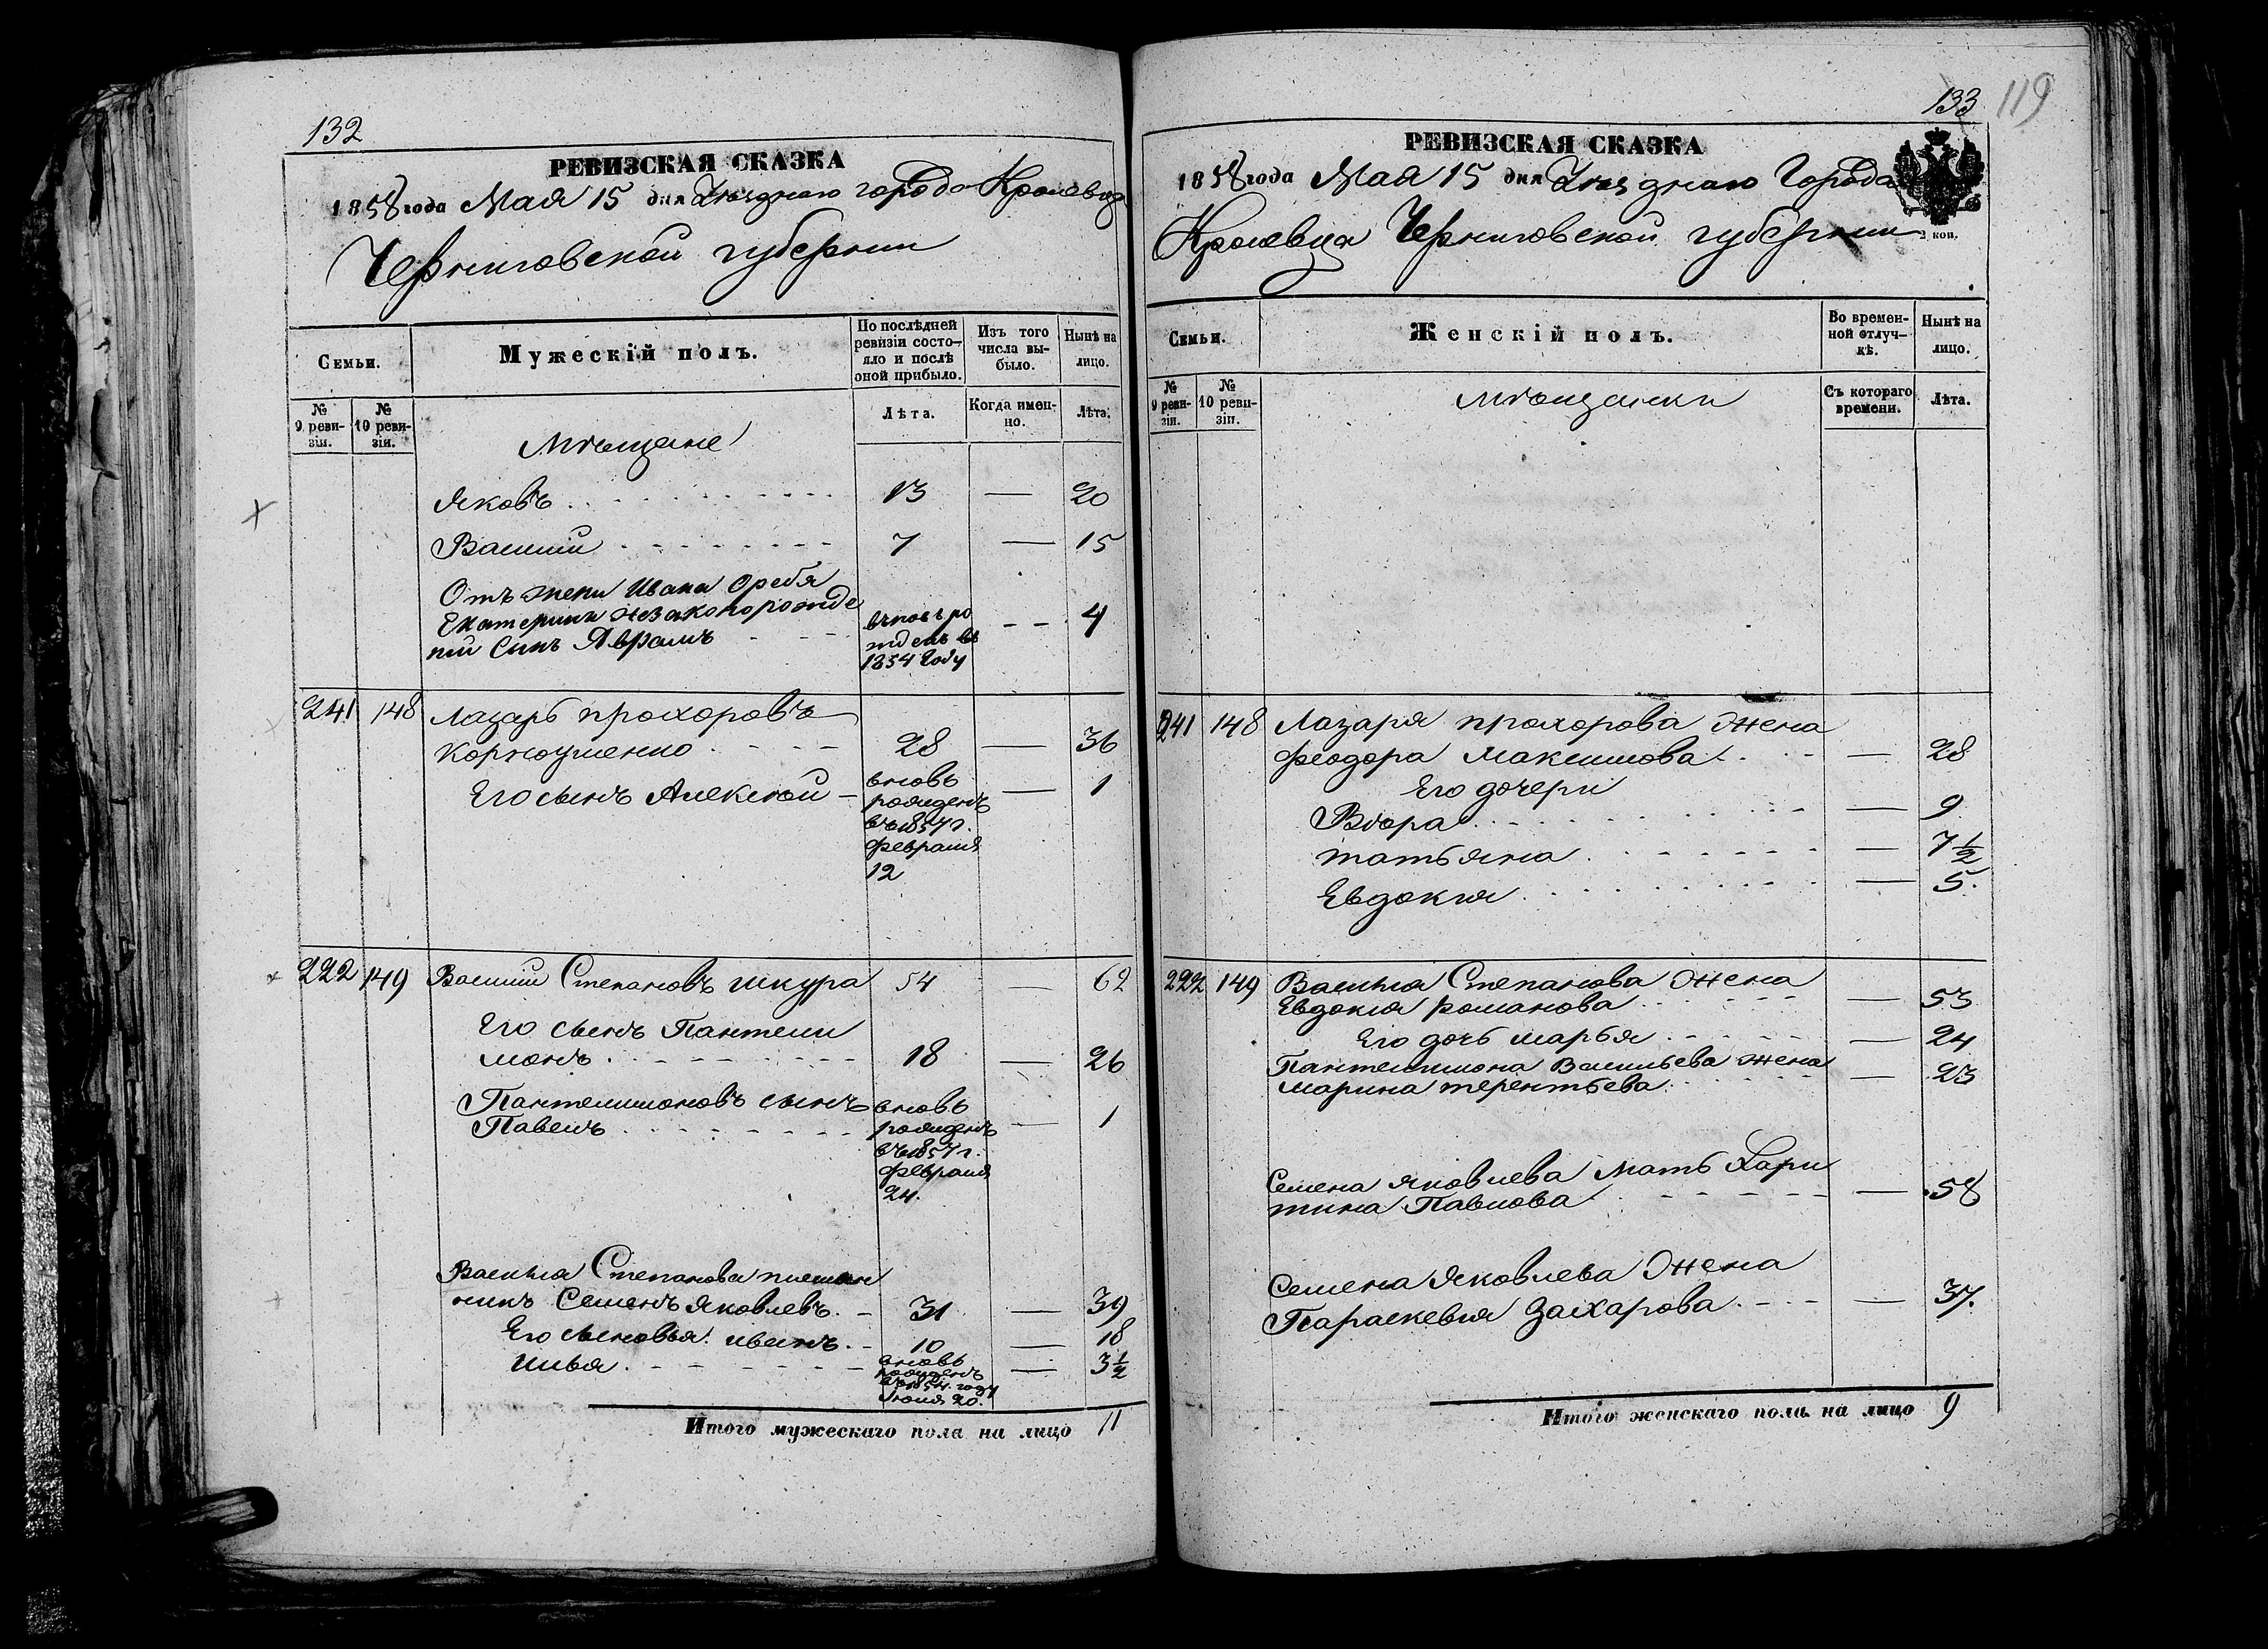 132
РЕВИЗСКАЯ СКАЗКА
1858 года Мая 15 дня Уѣзднаго города Кролевца
Черниговской губернии
Семьи.
Мужескій полъ.
По послѣдней ревизіи состояло и послѣ оной прибыло.
Изъ того числа выбыло.
Нынѣ на лицо.
№ 9 ревизіи.
№ 10 ревизіи.
Лѣта.
Когда именно.
Лѣта.
Мѣщане
Яковъ 13 — 20
Василій 7 — 15
Отъ жены Ивана
Екатерины незаконорожде
ный сынъ Аврамъ
вновь ро
жденъ въ
1854 году
4
241 148 Лазарь Прохоровъ
Корноушенко 28 — 36
Его сынъ Алексѣй — 1
вновь
рожденъ
въ 1857 г.
февраля
12
222 149 Василій Степановъ Шкура 54 — 62
Его сынъ Пантели
монъ 18 — 26
Пантелимоновъ сынъ
Павелъ — 1
вновь
рожденъ
въ 1857 г.
февраля
24.
Василія Степанова племян
никъ Семенъ Яковлевъ. 31 — 39
Его сыновья: Иванъ. 10 — 18
Илья. — 3½
вновь
рожденъ
въ 1854. году
20.
Итого мужескаго пола на лицо 11
133 119
РЕВИЗСКАЯ СКАЗКА
1858 года Мая 15 дня Уѣзднаго Города
Кролевца Черниговской губернии
2 коп.
Семьи.
Женскій полъ.
Во временной отлучкѣ.
Нынѣ на лицо.
№ 9 ревизіи.
№ 10 ревизіи.
Съ котораго времени.
Лѣта.
Мѣщанки
241 148 Лазаря Прохорова жена
Феодора Максимова — 28
Его дочери
Вѣра — 9
Татьяна — 7½
Евдокия — 5.
222 149 Василия Степанова жена
Евдокия Романова — 53
Его дочь Марья — 24
Пантелимона Васильева жена
Марина Терентьева. — 23
Семена Яковлева мать Хари
тина Павлова — 58
Семена Яковлева жена
Параскевия Захарова. — 37.
Итого женскаго пола на лицо 9